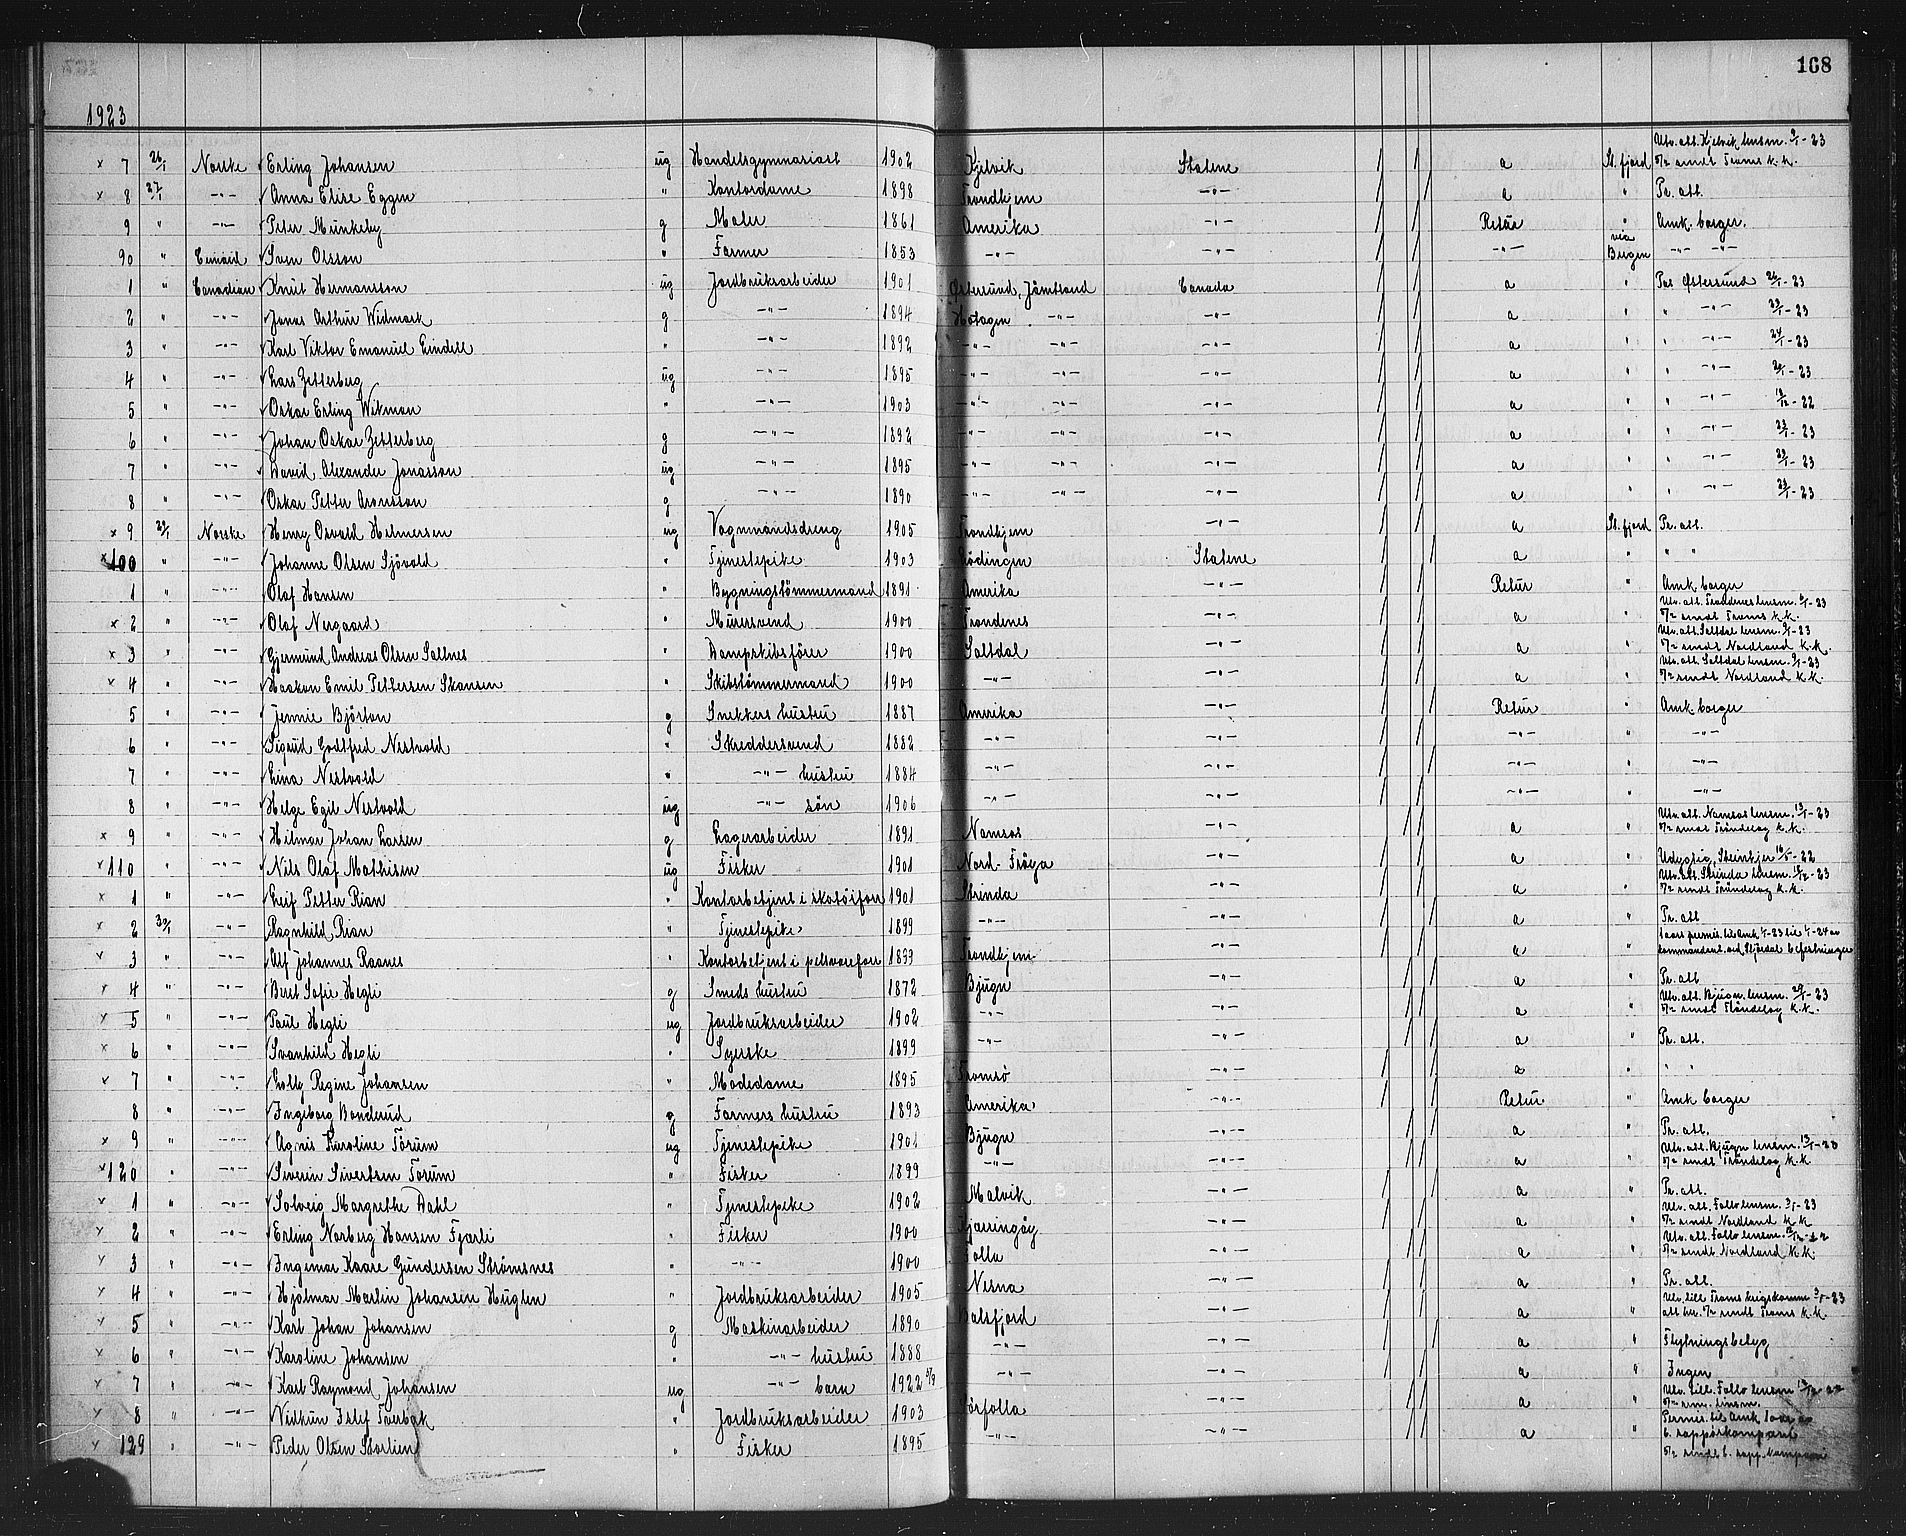 168
1923
x 7 26/1 Norske Erling Johansen ug Handelsgymnasiast 1902 Kjelvik Statene a St. fjord Utv. att. Kjelvik lensm. 9/1-23 5/2 sendt Troms k.k.
x 8 27/1 -"- Anna Elise Eggen " Kontordame 1898 Trondhjem -"- a " Pr. att.
9 " -"- Peter Munkeby g Maler 1861 Amerika -"- Retur " Amk. borger.
90 " Cunard Sven Olsson " Farmer 1853 -"- -"- -"- via Bergen -"- -"-
1 " Canadian Knut Hermansson ug Jordbruksarbeider 1901 Østersund, Jämtland Canada a " Pas Østersund 26/1-23
2 " -"- Jonas Arthur Widmark g -"- 1894 Hotagen -"- -"- a " " -"- 23/1-23
3 " -"- Karl Viktor Emanuel Lindell " -"- 1892 -"- -"- -"- a " " -"- 24/1-23
4 " -"- Lars Zetterberg ug -"- 1895 -"- -"- -"- a " " -"- -23
5 " -"- Oskar Erling Wikman " -"- 1903 -"- -"- -"- a " " -"- 12-22
6 " -"- Johan Oskar Zetterberg g -"- 1892 -"- -"- -"- a " " -"- 23/1-23
7 " -"- David Alexander Jonasson ug -"- 1895 -"- -"- -"- a " " -"- 23/1-23
8 " -"- Oskar Petter Aronsson g -"- 1890 -"- -"- -"- a " " -"- 23/1-23
x 9 29/1 Norske Henry Osvald Helmersen ug Vognmandsdreng 1905 Trondhjem -"- a St. fjord Pr. att.
x 100 " -"- Johanne Olsen Sjövold " Tjenestepike 1903 Lödingen Statene a " " "
1 " -"- Olaf Hansen " Bygningstömmermand 1891 Amerika -"- Retur " Amk. borger
x 2 " -"- Olaf Nergaard " Murersvend 1900 Trondenes -"- a " Utv. att. Trondenes lensm. 6/1-23 5/2 sendt Troms k.k.
x 3 " -"- Gjermund Andreas Olsen Saltnes " Dampskibsförer 1900 Saltdal -"- a " Utv. att. Saltdal lensm. 9/1-23 5/2 sendt Nordland k.k.
x 4 " -"- Haakon Emil Pettersen Skansen " Skibstömmermand 1900 -"- -"- a " Utv. att. Saltdal lensm. 9/1-23 5/2 sendt Nordland k.k.
5 " -"- Jennie Björton g Snekkers hustru 1887 Amerika -"- Retur " Amk. borger
6 " -"- Sigurd Godtfred Nestvold " Skreddersvend 1882 -"- -"- -"- " -"-
7 " -"- Lina Nestvold " -"- hustru 1884 -"- -"- -"- " -"-
8 " -"- Helge Egil Nestvold ug -"- sön 1906 -"- -"- -"- " -"-
x 9 " -"- Hilmar Johan Larsen g Lagerarbeider 1891 Namsos -"- a " Utv. att. Namsos lensm. 13/1-23 5/2 sendt Tröndelag k.k.
x 110 " -"- Nils Olaf Mathisen ug Fisker 1901 Nord-Fröya -"- a " Udygtig, Steinkjer 16/5-22
x 1 " -"- Leif Petter Rian " Kontorbetjent i skotöiforr 1901 Strinda -"- a " Utv. att. Strinda lensm. -23 5/2 sendt Tröndelag k.k.
x 2 30/1 -"- Ragnhild Rian " Tjenestepike 1899 -"- -"- a " Pr. att
x 3 " -"- Alf Johannes Raanes " Kontorbetjent i pelsvareforr 1899 Trondhjem -"- a " 1 aars permis. til Amk 1/1-23 til 1/1-24 av kommandant. ved Stjördal befestninger
x 4 " -"- Beret Sofie Hegli g Smeds hustru 1872 Bjugn -"- a " Pr. att
x 5 " -"- Paul Hegli ug Jordbruksarbeider 1902 -"- -"- a " Utv. att. Bjugn. lensm. 29/1-23 5/2 sendt Tröndelag k.k.
x 6 " -"- Svanhild Hegli " Syerske 1899 -"- -"- a " Pr. att.
x 7 " -"- Lolly Regine Johansen " Modedame 1895 Tromsö -"- a " " "
8 " -"- Ingeborg Bonderud g Farmers hustru 1893 Amerika -"- Retur " Amk borger
x 9 " -"- Agnes Karoline Torum ug Tjenestepike 1901 Bjugn -"- a " Pr. att.
x 120 " -"- Siverin Sivertsen Torum " Fisker 1899 -"- -"- a " Utv. att. Bjugn lensm. 13/1-23 5/2 sendt Tröndelag k.k.
x 1 " -"- Solveig Margrethe Dahl " Tjenestepike 1902 Malvik -"- a " Pr. att.
x 2 " -"- Erling Norberg Hansen Fjærli " Fisker 1900 Kjærringöy -"- a " Utv. att. Folla lensm. 3/1-23 5/2 sendt Nordland k.k
x 3 " -"- Ingemar Kaare Gundersen Strömsnes " -"- 1900 Folla -"- a " Utv. att. Folla lensm. 5/2 sendt Nordland k.k.
x 4 " -"- Hjalmar Martin Johansen Huglen " Jordbruksarbeider 1905 Nesna -"- a " Pr. att.
x 5 " -"- Karl Johan Johansen g Maskinarbeider 1890 Balsfjord -"- a " Utv. till. Troms krigskomm 3/1-23 5/2 sendt Troms k.k.
x 6 " -"- Karoline Johansen " -"- hustru 1888 -"- -"- a " Flytningsbetyg
x 7 " -"- Karl Raymond Johansen ug -"- barn 1922 -"- -"- a " Ingen
x 8 " -"- Vidkun Islef Tverbak " Jordbruksarbeider 1903 Sörfolla -"- a " Utv. till. Folla lensm
x 129 " -"- Peder Olsen Storlien " Fisker 1895 -"- -"- a " Permis. til Amk 5/2 sendt